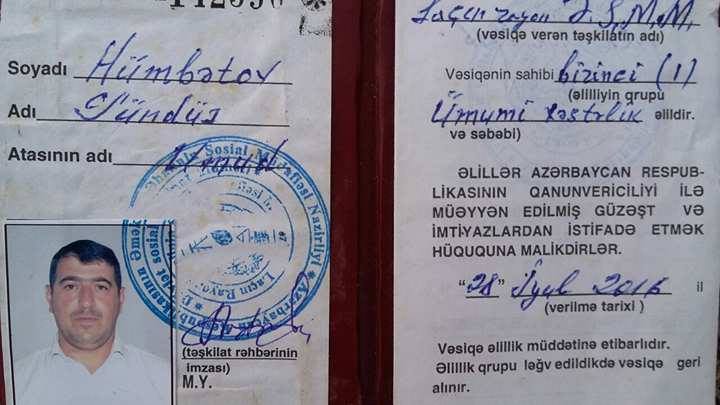 Soyadı Hümbətov
Adı Gündüz
Atasının adı Umud
(təşkilat rəhbərinin
imzası)
M.Y.
Laçın rayon Ə.S.M.M.
(vəsiqə verən təşkilatın adı)
Vəsiqənin sahibi birinci (1)
(əlilliyin qrupu
Ümumi xəstəlik əlildir.
və səbəbi)
ƏLİLLƏR AZƏRBAYCAN RESPUB-
LİKASININ QANUNVERİCİLİYİ İLƏ
MÜƏYYƏN EDİLMİŞ GÜZƏŞT VƏ
İMTİYAZLARDAN İSTİFADƏ ETMƏK
HÜQUQUNA MALİKDİRLƏR.
"28" İyul 2016 il
(verilmə tarixi )
Vəsiqə əlillik müddətinə etibarlıdır.
Əlillik qrupu ləğv edildikdə vəsiqə geri
alınır.